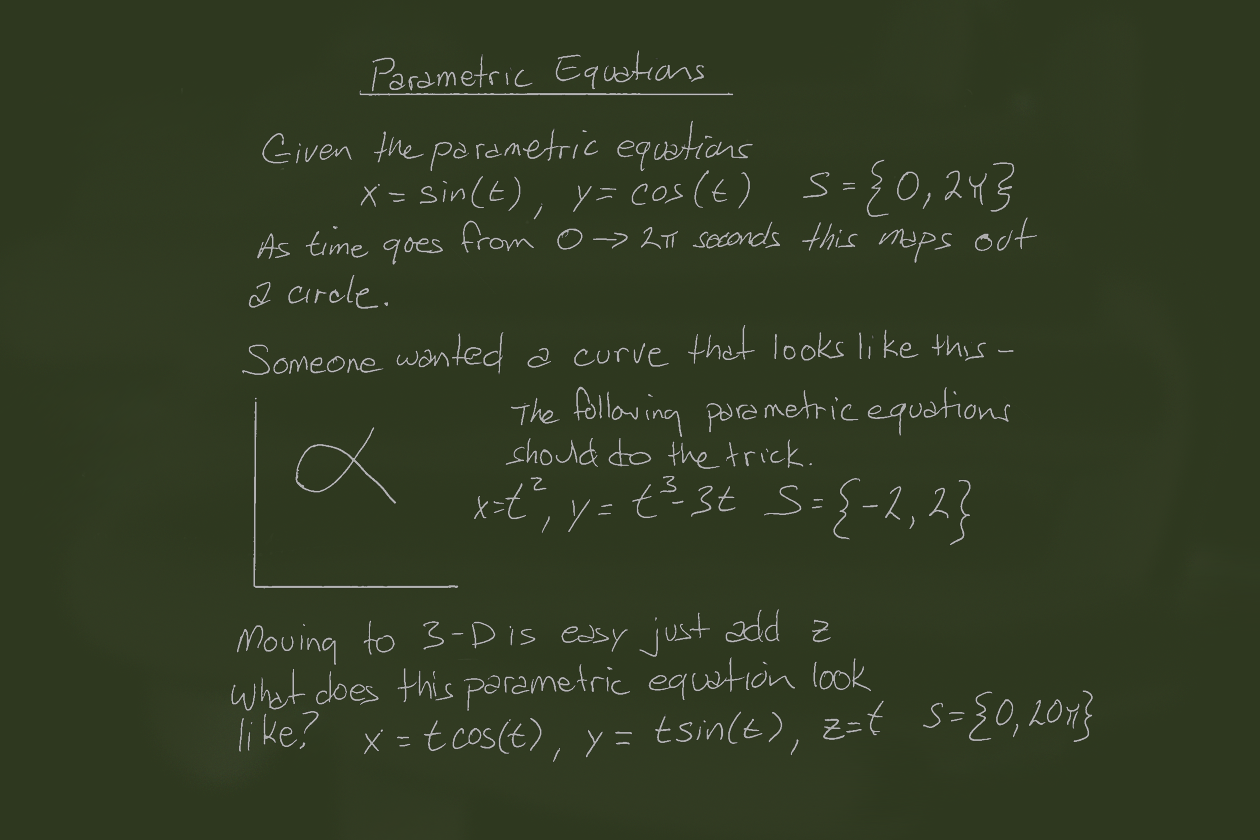 Parametric Equations
Given the parametric equations
x = sin(t), y = cos(t) S = {0, 2π}
As time goes from 0 → 2π seconds this maps out
a circle.
Someone wanted a curve that looks like this -
The following parametric equations
should do the trick.
x = t², y = t³ - 3t S = {-2, 2}
Moving to 3-D is easy just add z
What does this parametric equation look
like? x = t cos(t), y = t sin(t), z = t S = {0, 20π}